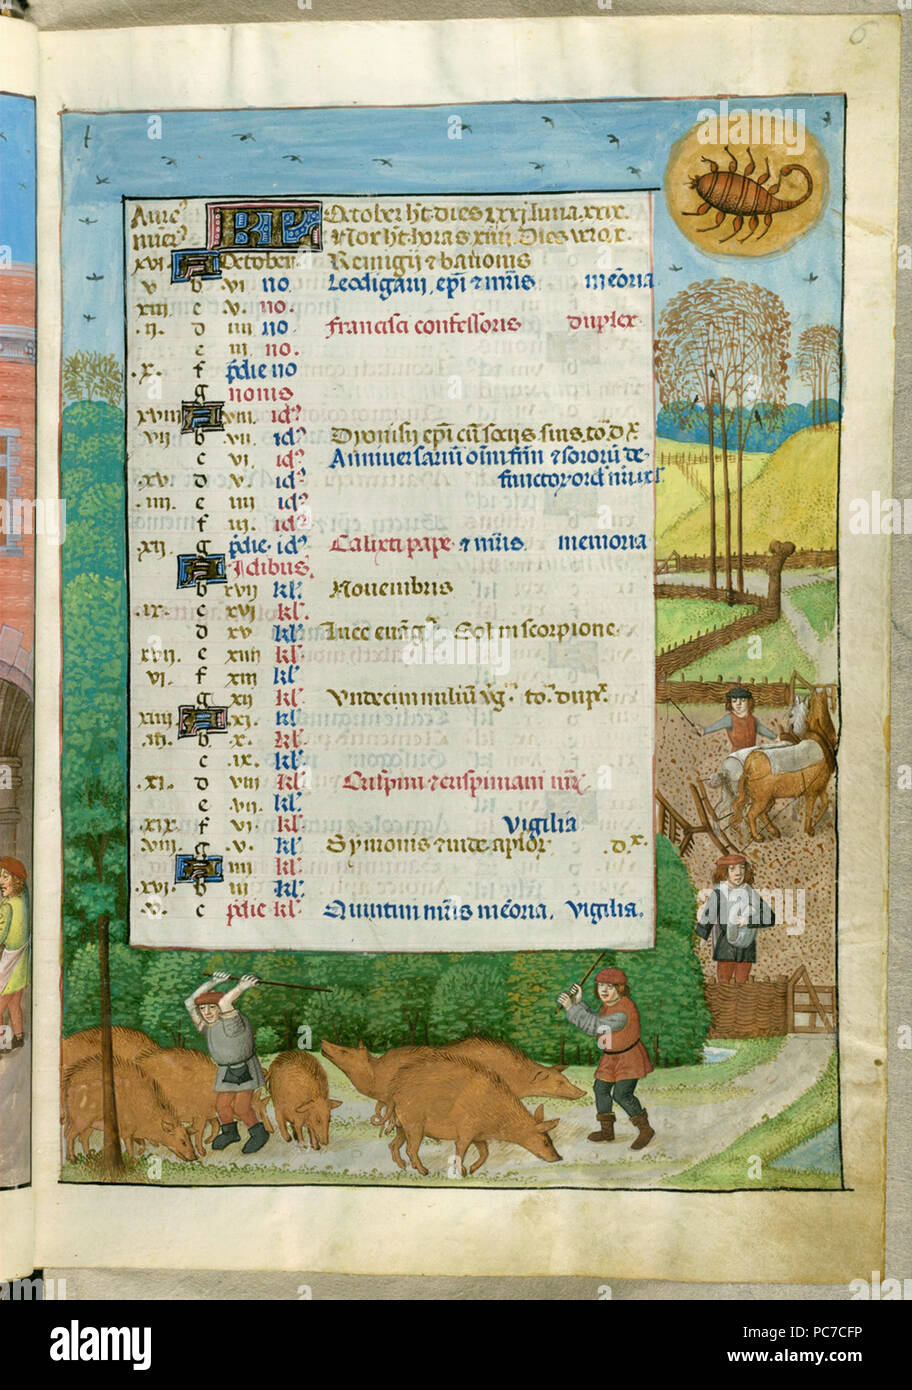 6
Aure⁹ KL October ht dies xxxi luna xxix.
nūer⁹ Nox ht horas xiiii. Dies vero x.
xvi. A October. Remigii et bavonis
v b vi no. Leodigarii, ep̄i et m̄ris memoria
xiii c v. no.
.ii. d iiii no francisci confessoris duplex
e iii no.
.x. f p̄die no
g nonis
xviii A viii. id⁹
vii b vii. id⁹ Dyonisii ep̄i cū sociis suis. to. dx
c vi. id⁹ Anniversariū om̄i frm̄ et sororū de-
xv. d v. id⁹ functor ord
.iiii. e iiii id⁹
f iii. id⁹
.xii. g p̄die. id⁹ Calixti pape et m̄ris memoria
A Idibus.
b xvii kl⁹ Novembris
.ix. c xvi kl⁹
d xv kl⁹ Luce evāg. Sol in scorpione.
xvii. e xiiii kl⁹
vi. f xiii kl⁹
g xii kl⁹ Undecim miliū vg. to. dup.
xiiii A xi. kl⁹
.iii. b .x. kl⁹
c .ix. kl⁹
.xi. d viii kl⁹ Crispini et crispiniani m̄r
e vii. kl⁹
.xix. f vi. kl⁹ Vigilia
viii. g .v. kl⁹ Symonis et iude aplor .dx.
A iiii kl⁹
.xvi. b iii kl⁹
.v. c p̄die kl⁹ Quintini m̄ris memoria. vigilia.
alamy
Image ID: PC7CFP
www.alamy.com